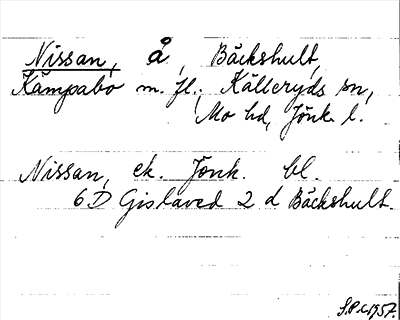 Nissan, å, Bäckshult,
Kämpabo m. fl., Källeryds sn,
Mo hd, Jönk. l.
Nissan, ek. Jönk. bl.
6D Gislaved 2 d Bäckshult.
1957.